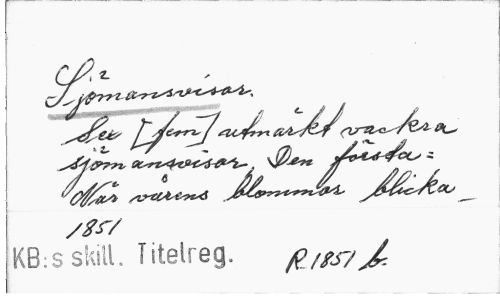 Sjömansvisor.
Sex [fem] utmärkt vackra
sjömansvisor. Den första =
När vårens blommor blicka_
1851
KB:s skill. Titelreg. R 1851 b.